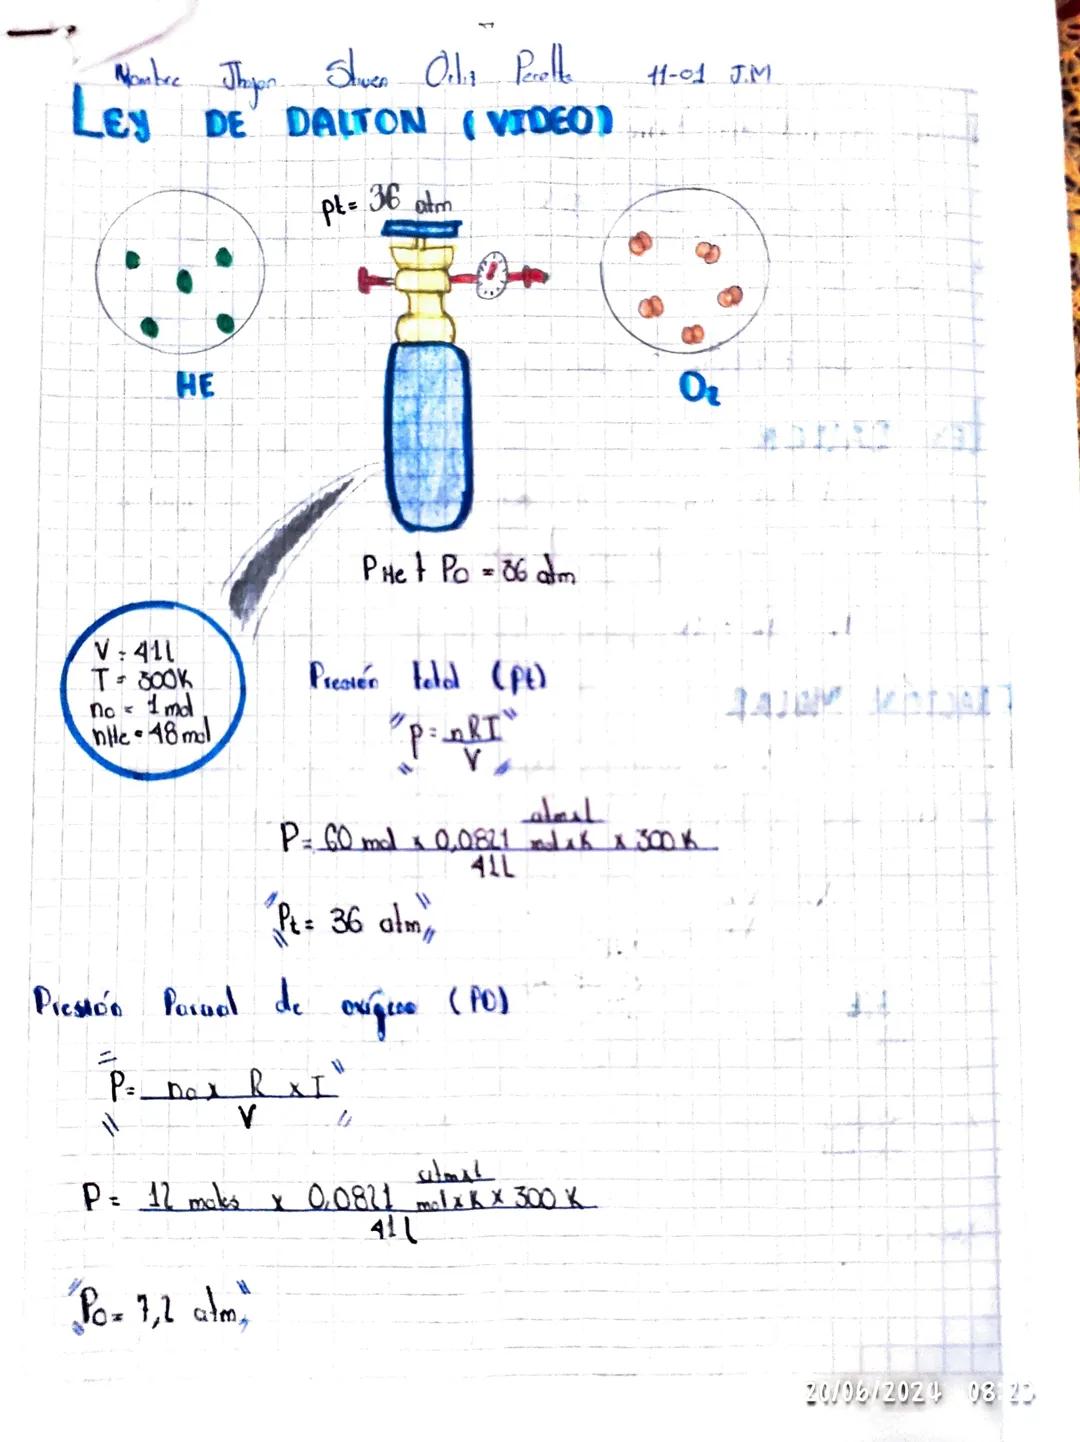 Nombre Jhojan Stiven Ortiz Peralta 11-01 J.M
LEY DE DALTON (VIDEO)
pt = 36 atm
HE
O2
PHe + PO = 36 atm
V = 41l
T = 300K
no = 1 mol
nHe = 48 mol
Presión total (pt)
"P = nRT"
V
atmxL
P = 60 mol x 0,0821 molxK x 300 K
41L
"Pt = 36 atm"
Presión Parcial de oxígeno (PO)
"P = no x R x T"
V
atmxl
P = 12 moles x 0,0821 molxK x 300 K
41l
"Po = 7,2 atm"
20/06/2024 08:23